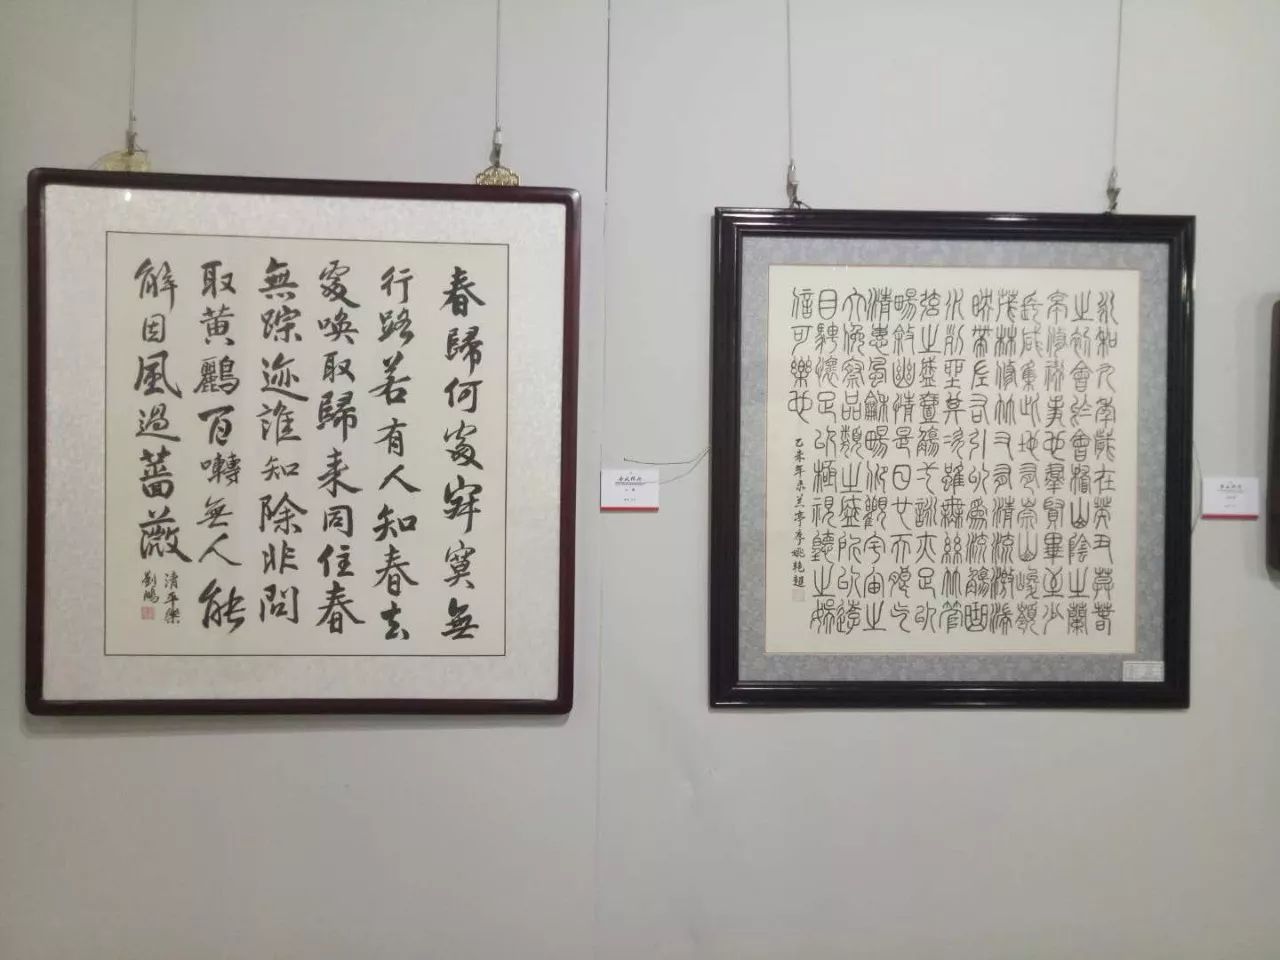 春歸何處寂寞無
行路若有人知春去
處喚取歸来同住春
無踪迹誰知除非問
取黄鸝百囀無人能
解因風過薔薇
清平樂
劉鴻
永和九年歲在癸丑莫春
之初會於會稽山陰之蘭
亭修禊事也羣賢畢至少
長咸集此地有崇山峻嶺
茂林修竹又有清流激湍
映帶左右引以為流觴曲
水列坐其次雖無絲竹管
弦之盛壹觴弌詠亦足以
暢敘幽情是日也天朗气
清惠風龢暢仰觀宇宙之
大俛察品類之盛所以遊
目騁懷足以極視聽之娛
信可樂也
乙未年录兰亭序姚艳超